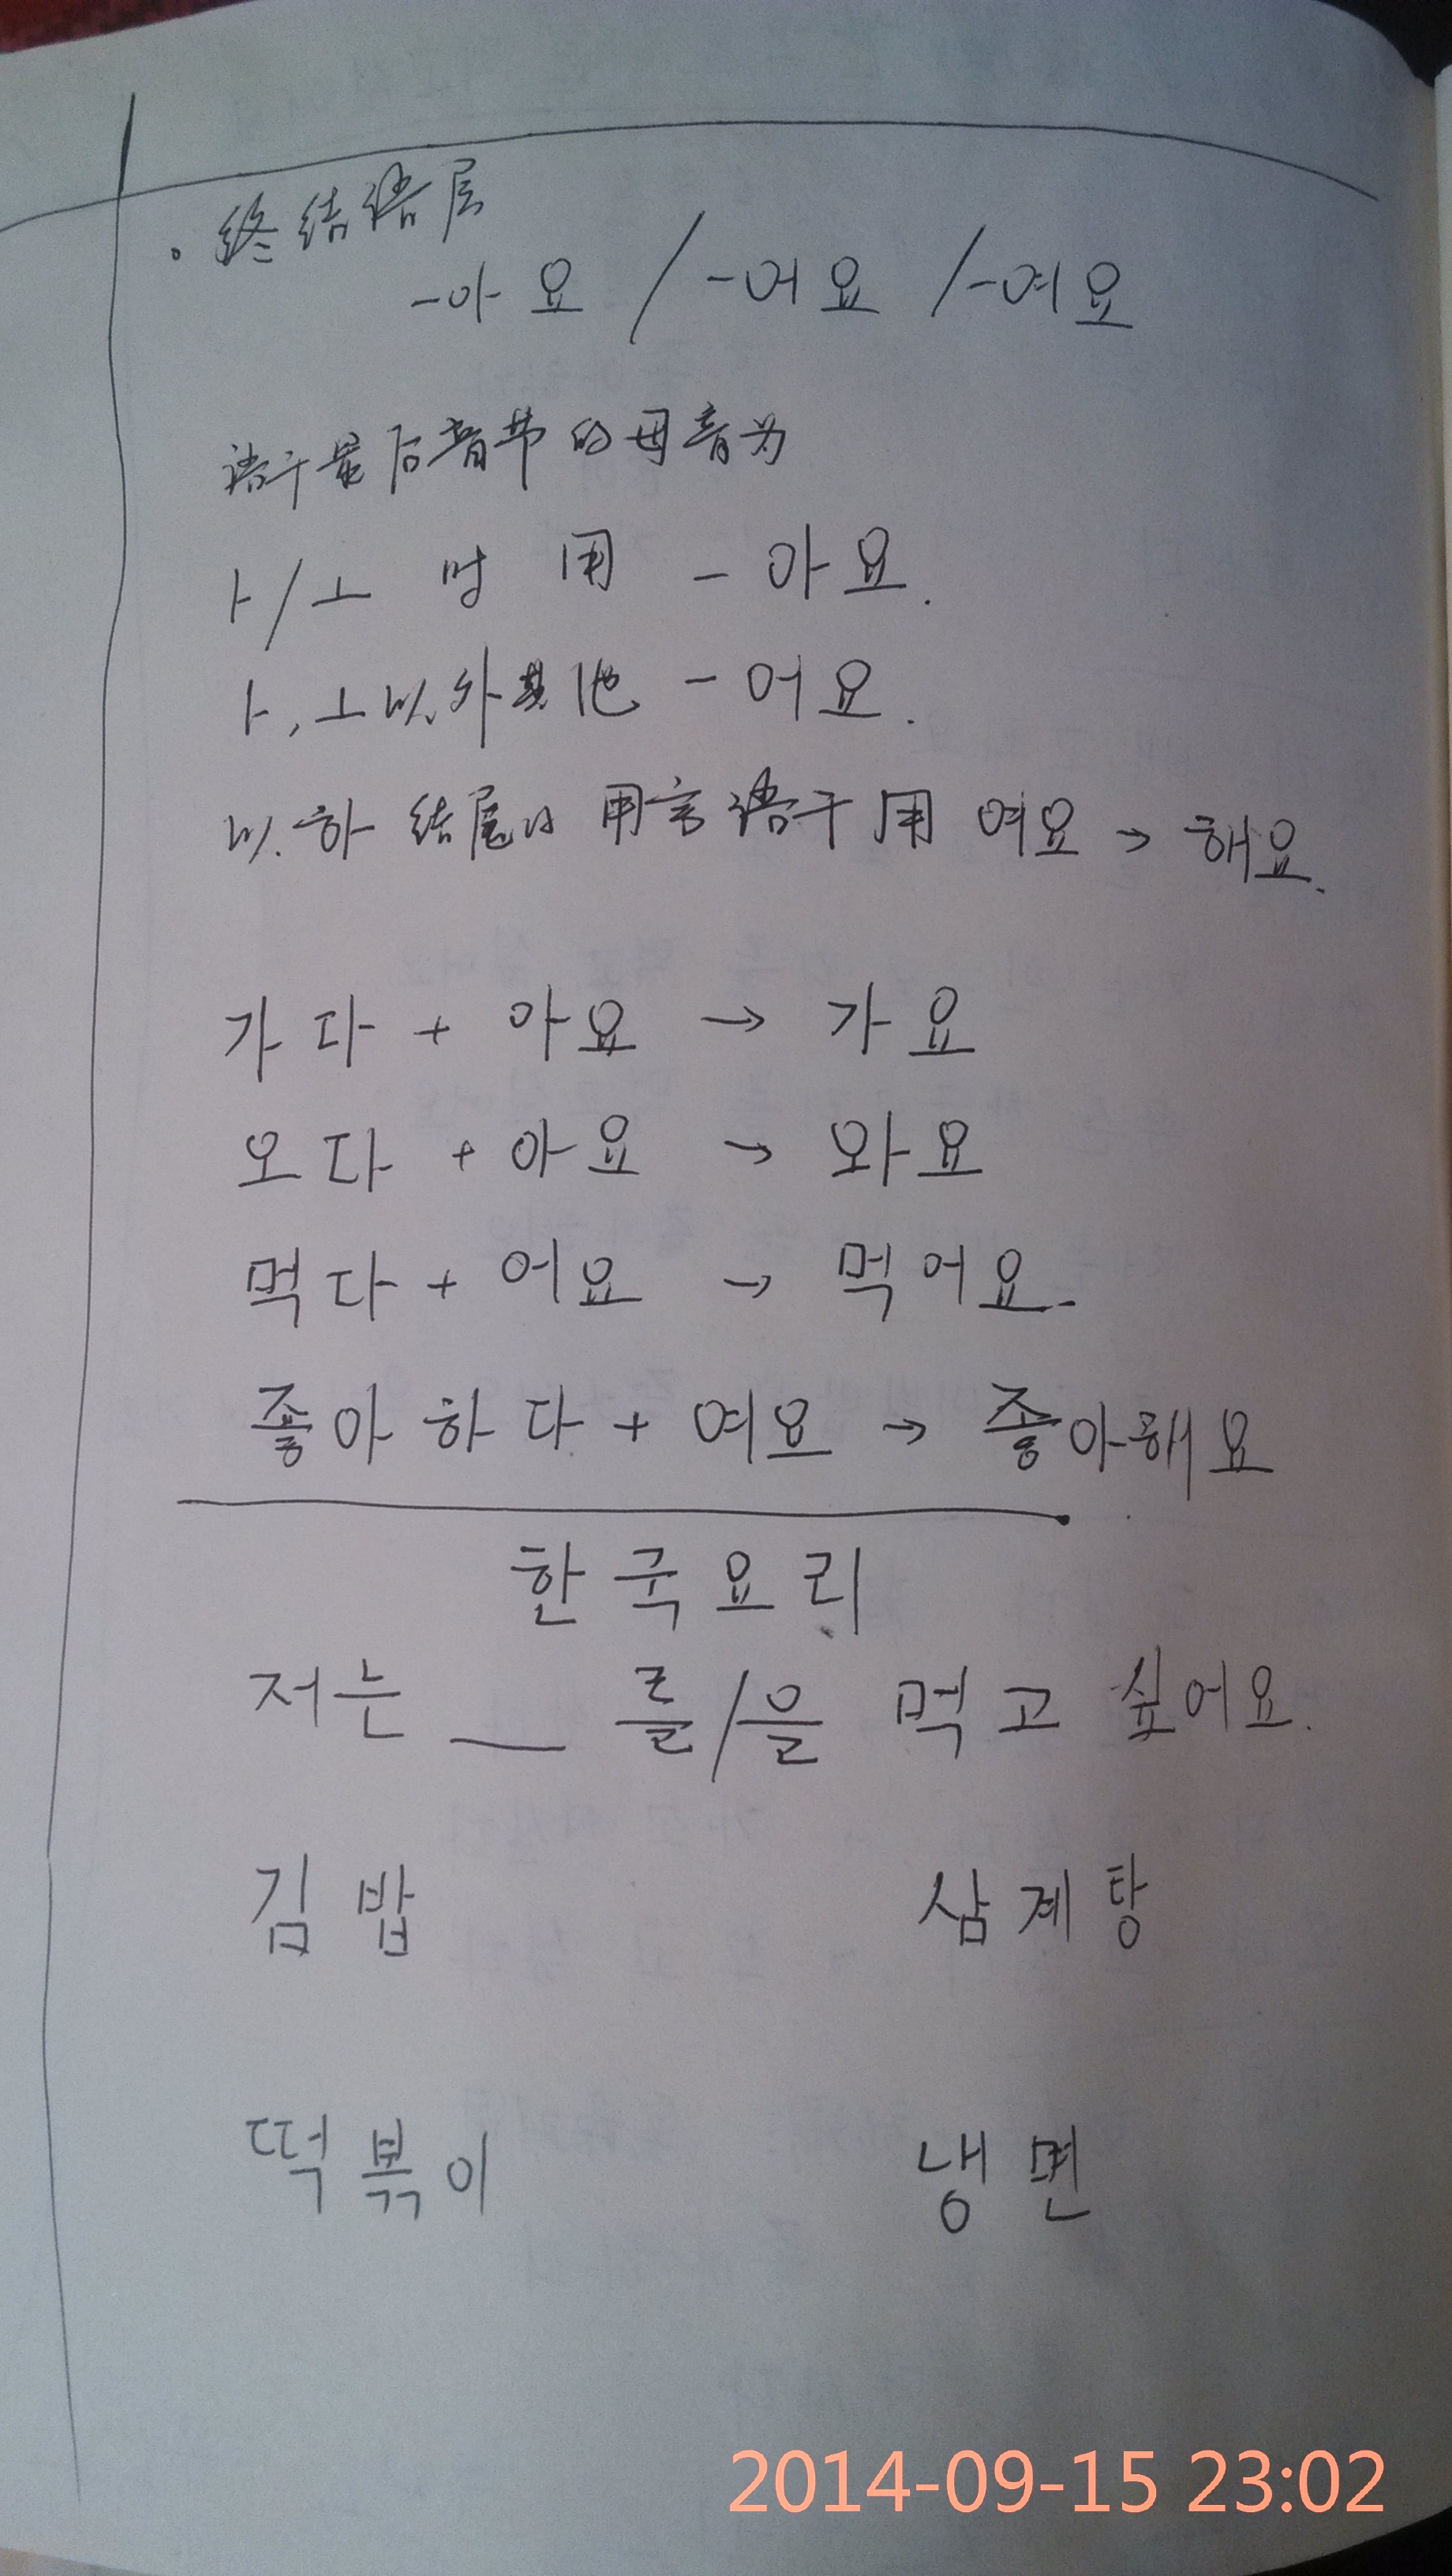 . 终结语尾
-아요 / -어요 / -여요
语干最后音节的母音为
ㅏ/ㅗ 时 用 - 아요.
ㅏ,ㅗ以外其他 - 어요.
以 하 结尾的 用言语干 用 여요 → 해요.
가다 + 아요 → 가요
오다 + 아요 → 와요
먹다 + 어요 → 먹어요.
좋아하다 + 여요 → 좋아해요
한국요리
저는 __ 를/을 먹고 싶어요.
김밥 삼계탕
떡볶이 냉면
2014-09-15 23:02